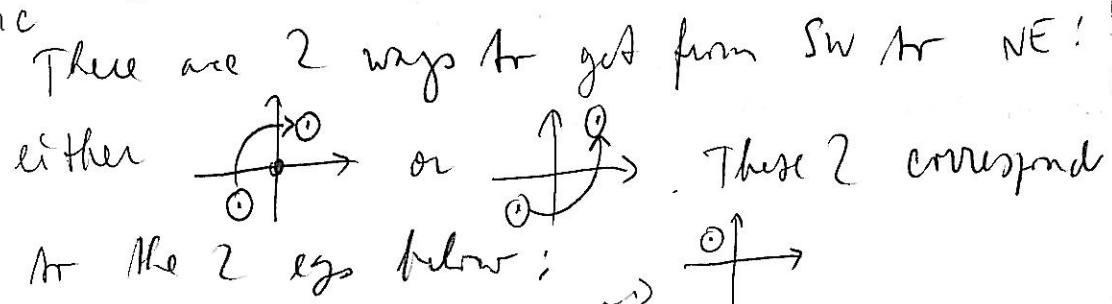 There are 2 ways to get from SW to NE:
either or . These 2 correspond
to the 2 egs below: